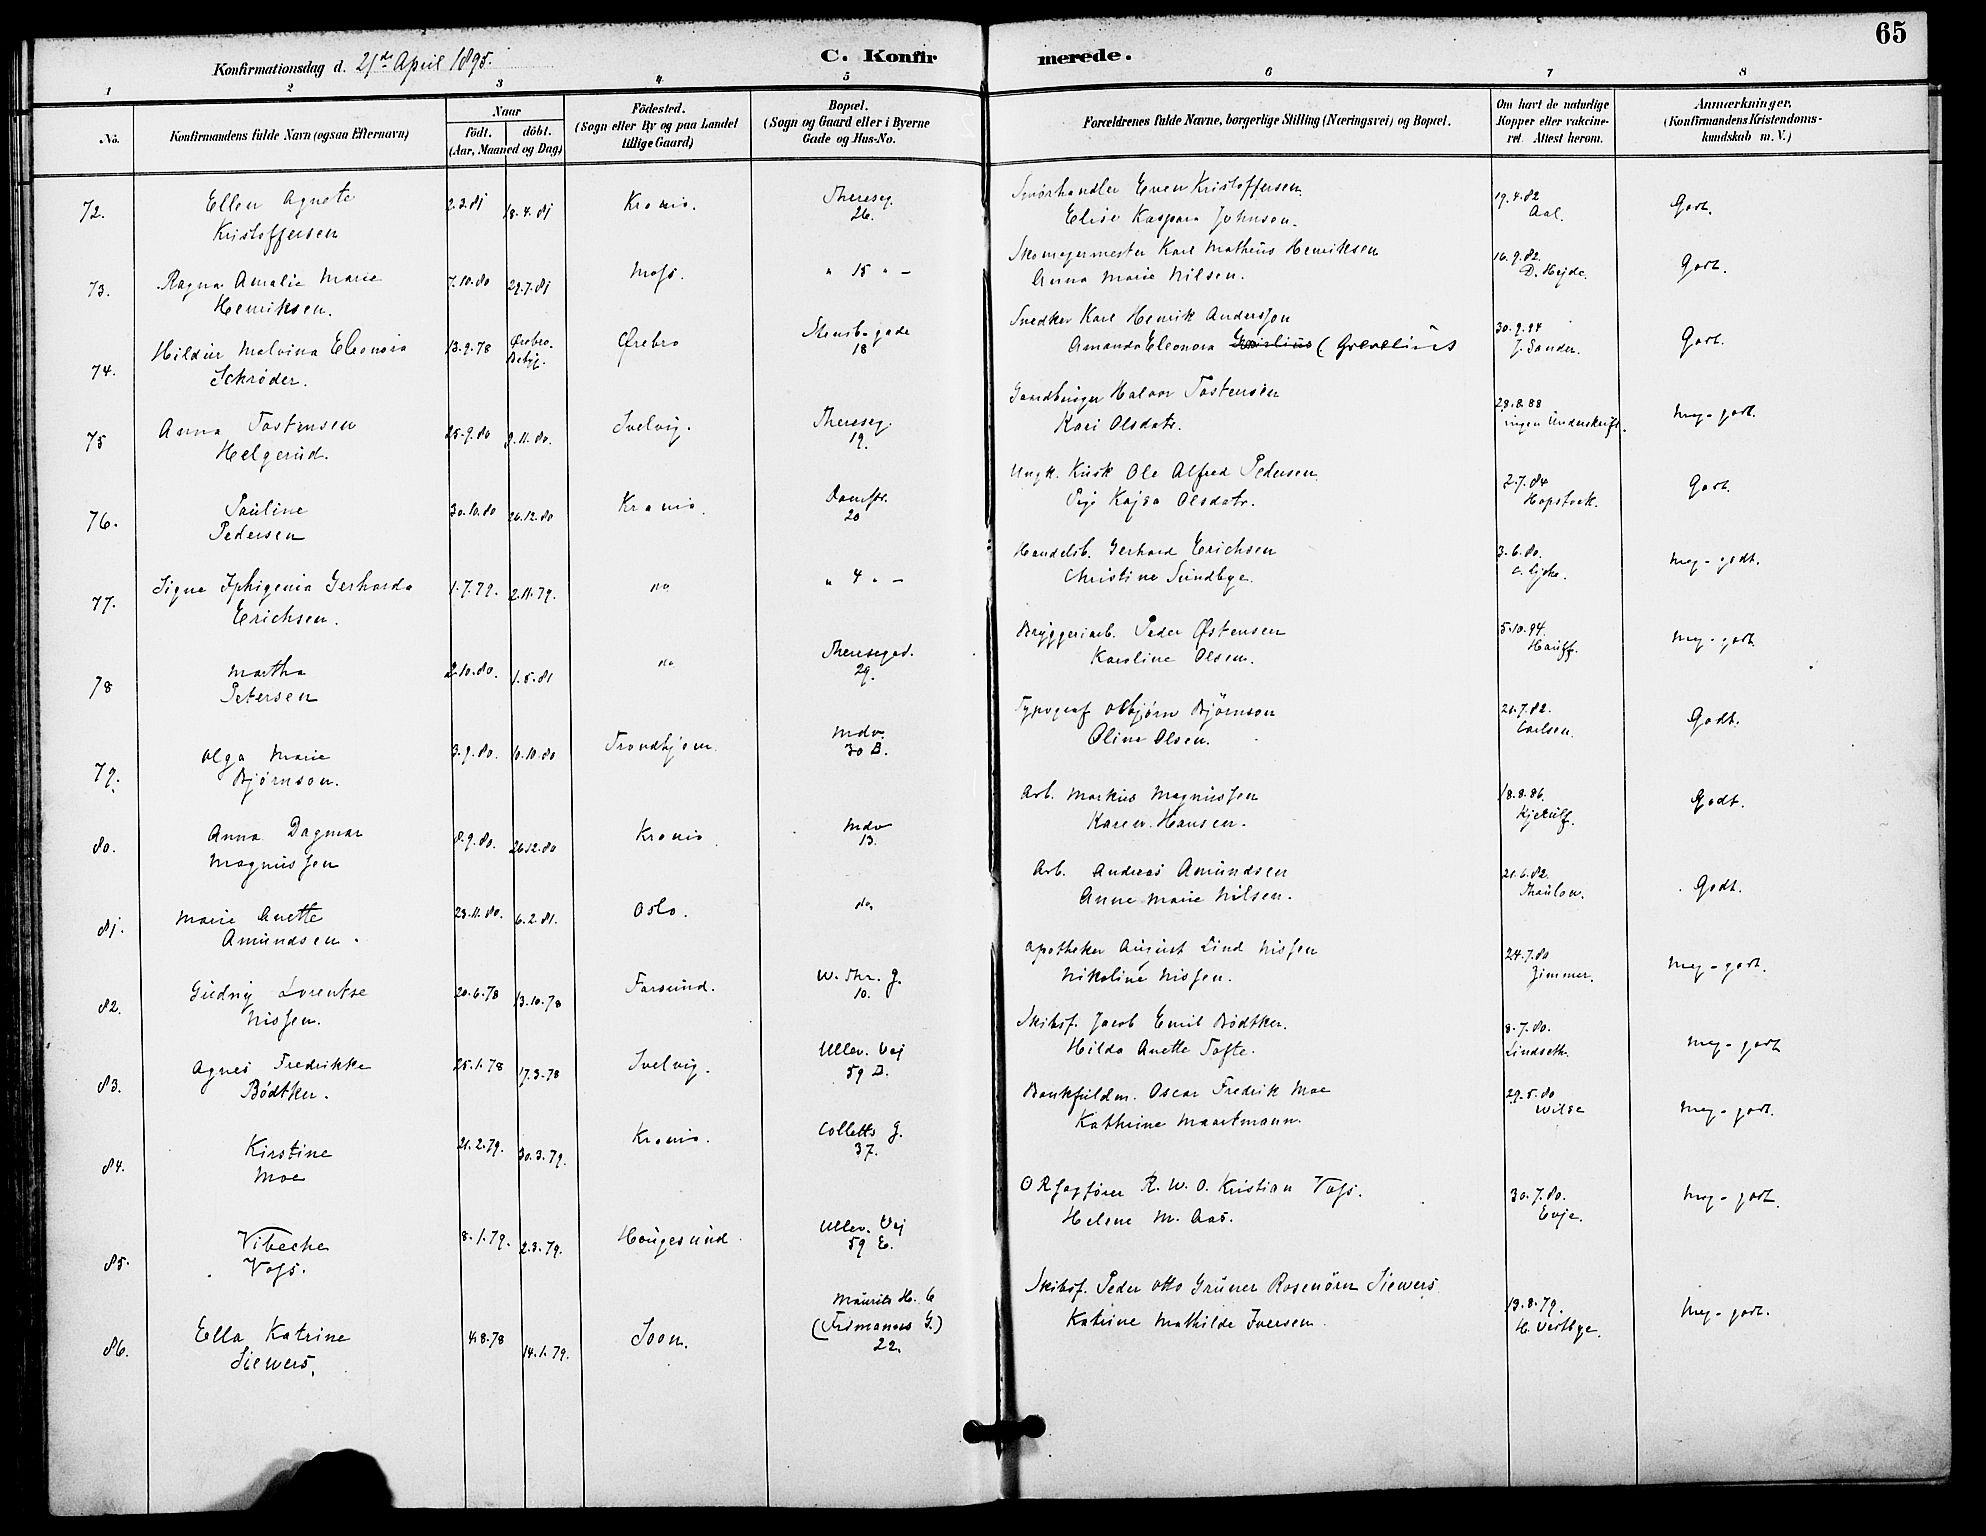 65
Konfirmationsdag d. 21de April 1895.
C. Konfirmerede.
1 2 3 4 5 6 7 8
No.
Konfirmandens fulde Navn (ogsaa Efternavn)
Naar
födt. döbt.
(Aar, Maaned og Dag)
Födested.
(Sogn eller By og paa Landet
tillige Gaard)
Bopæl.
(Sogn og Gaard eller i Byerne
Gade og Hus-No.
Forældrenes fulde Navne, borgerlige Stilling (Næringsvei) og Bopæl.
Om havt de naturlige
Kopper eller vakcine-
ret. Attest herom.
Anmærkninger.
(Konfirmandens Kristendoms-
kundskab m. V.)
72. Ellen Agnete 2.2.81 18.4.81 Krania. Thereseg. Smørhandler Even Kristoffersen 19.4.82 Godt.
Kristoffersen 26. Elise Kaspara Johnsen. Aal.
73. Ragna Amalie Marie 7.10.80 29.7.81 Moss. " 15 " – Skomagermester Karl Matheus Henriksen 16.9.82 Godt.
Henriksen. Anna Marie Nilsen. D. Hejde.
74. Hildur Malvina Eleonora 13.9.78 Ørebro. Ørebro Stensb. gade Snedker Karl Henrik Andersson 30.9.94 Godt.
Schrøder. 18 Amanda Eleonora (Grevelius J. Sander.
75 Anna Tostensen 25.9.80 9.11.80. Svelvig. Thereseg. Gaardbruger Halvor Tostensen 28.8.88 Meg-godt.
Helgerud. 19. Kari Olsdatr. ingen Underskrift.
76. Pauline 30.10.80 26.12.80 Krania. 20 Ungk. Kusk Ole Alfred Pedersen 2.7.84 Godt.
Pedersen Pige Kajsa Olsdatr. Hopstock.
77. Signe Iphigenia Gerharda 1.7.79. 2.11.79. do " 4 " – Handelsb. Gerhard Erichsen 3.6.80. Meg-godt.
Erichsen. Christine Sundbye.
78 Martha 2.10.80. 1.5.81 do Theresegd. Bryggeriarb. Peder Østensen 5.10.94. Meg-godt.
Petersen 29. Karoline Olsen. Hauff.
79. Olga Marie 3.9.80. 10.10.80 Trondhjem. Mdv. Typograf Asbjørn Bjørnson 20.7.82. Godt.
Bjørnson. 30 B. Oline Olsen. Carlsen.
80. Anna Dagmar 8.9.80. 26.12.80 Krania. Mdv Arb. Markus Magnussen 18.8.86. Godt.
Magnussen 13. Karen Hansen. Kjerulf.
81. Marie Anette 23.11.80. 6.2.81. Oslo. do. Arb. Andreas Amundsen 21.6.82. Godt.
Amundsen. Anne Marie Nilsen. Thaulow.
82. Gudny Lorentse 20.6.78 13.10.78 Farsund. W. Thr. G. Apotheker August Lind Nissen 24.7.80 Meg-godt.
Nissen. 10. Nikoline Nissen. Zimmer.
83. Agnes Fredrikke 25.1.78 17.3.78 Svelvig. Ullev. Vej Skibsf. Jacob Emil Bødtker. 8.7.80. Meg-godt
Bødtker. 59 B. Hilda Anette Tofte. Lindseth.
84. Kirstine 21.2.79. 30.3.79. Krania. Colletts G. Bankfuldm. Oscar Fredrik Moe 29.5.80 Meg-godt.
Moe 37. Kathrine Maartmann. Wilse
85. Vibecke 8.1.79. 2.3.79. Haugesund Ullev. Vej ORsagfører R. W. O. Kristian Voss. 30.7.80. Meg-godt
Voss. 59 E. Helene M. Aas. Evje.
86. Ella Katrine 4.8.78 14.1.79. Soon. Maurits H. G Skibsf. Peder Otto Grüner Rosenörn Siewers 19.8.79. Meg-godt.
Siewers. (Frimanns G.) 22. Katrine Mathilde Iversen. H. Vestbye.